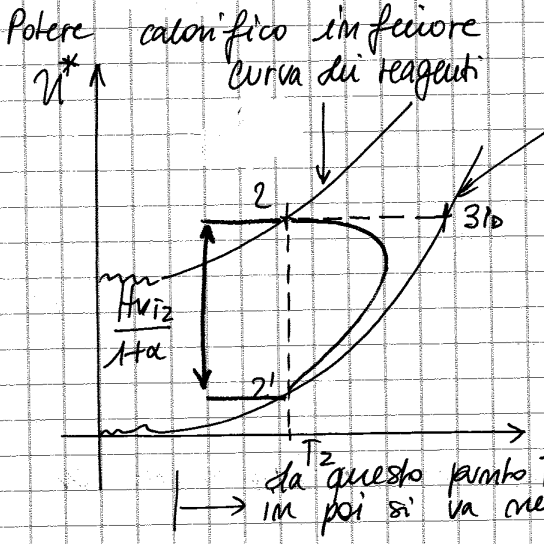 Potere calorifico inferiore
curva dei reagenti
U*
2
3ID
Hvi2
1+α
2'
T2
da questo punto
in poi si va